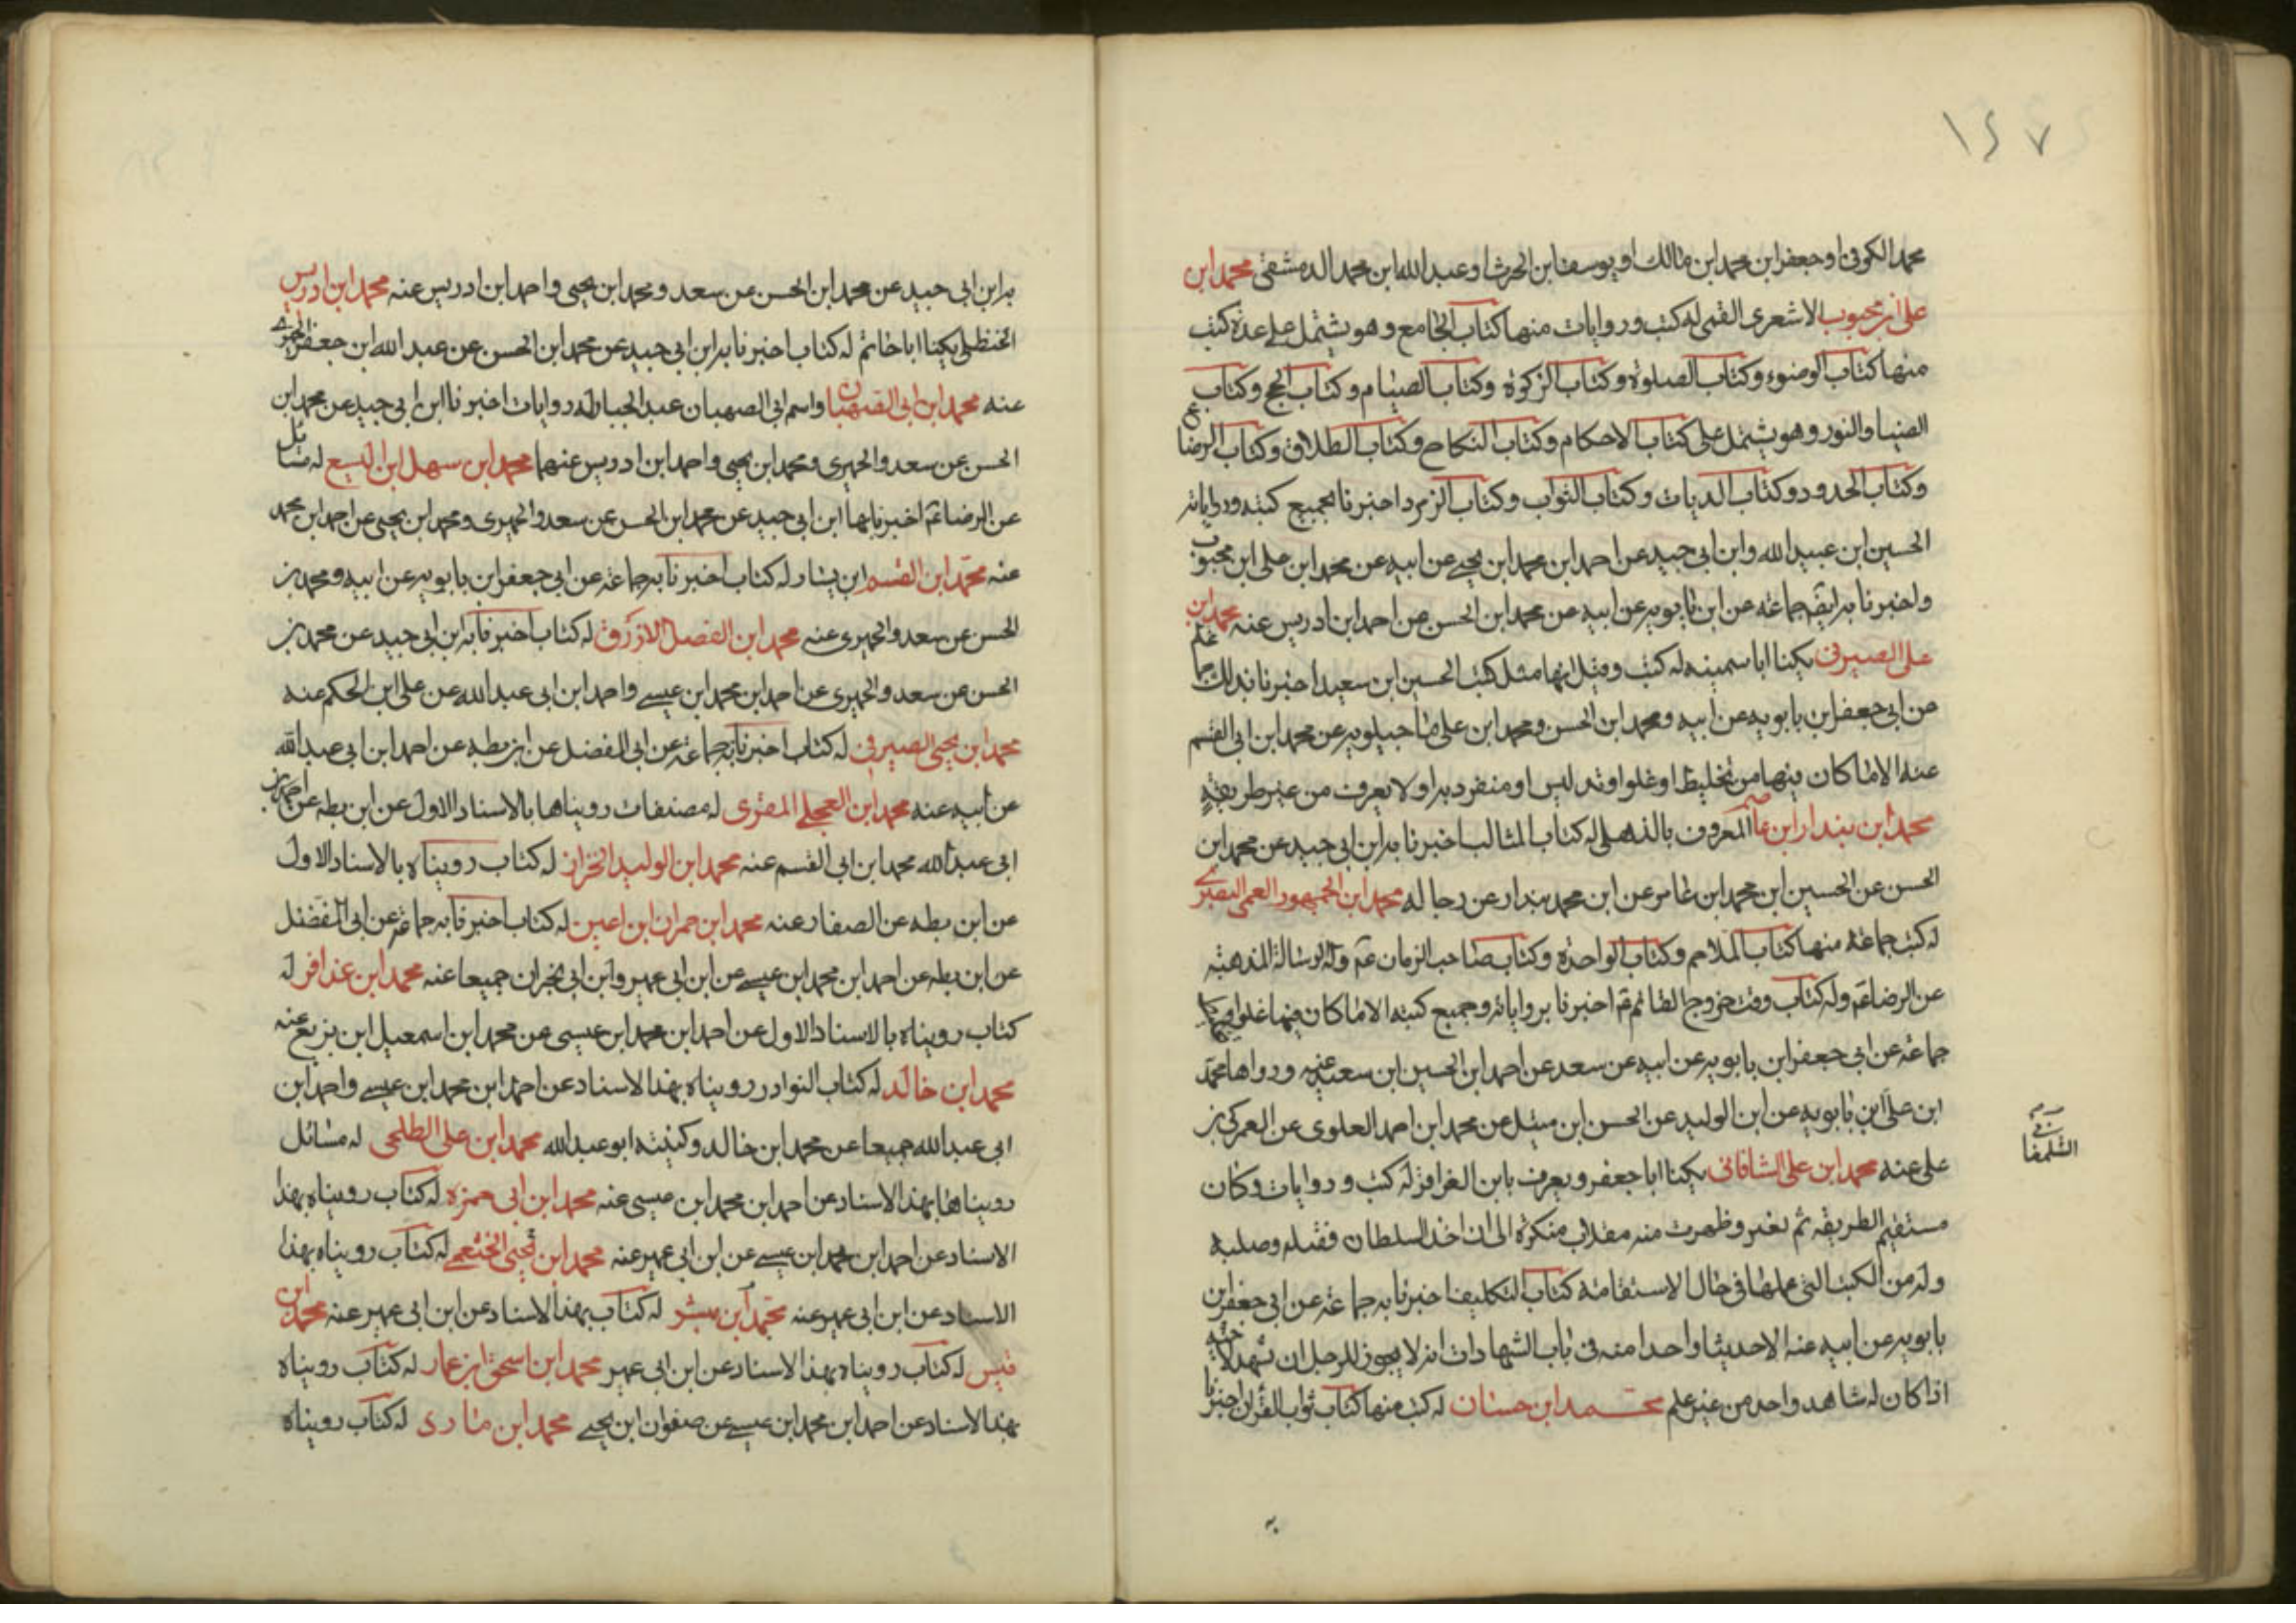 ١٤٧
محمد الكوفى او جعفر ابن محمد ابن مالك او يوسف ابن الحرث او عبد الله ابن محمد الدمشقى محمد ابن
على ابن محبوب الاشعرى القمى له كتب وروايات منها كتاب الجامع وهو يشتمل على عدة كتب
منها كتاب الوضوء وكتاب الصلوة وكتاب الزكوة وكتاب الصيام وكتاب الحج وكتاب
الضياء والنور وهو يشتمل على كتاب الاحكام وكتاب النكاح وكتاب الطلاق وكتاب الرضاع
وكتاب الحدود وكتاب الديات وكتاب الثواب وكتاب الزمرد اخبرنا بجميع كتبه ورواياته
الحسين ابن عبيد الله وابن ابى جيد عن احمد ابن محمد ابن يحيى عن ابيه عن محمد ابن على ابن محبوب
واخبرنا به ايضه جماعة عن ابن بابويه عن ابيه عن محمد ابن الحسن عن احمد ابن ادريس عنه محمد ابن
على الصيرفى يكنا ابا سمينه له كتب وقيل انها مثل كتب الحسين ابن سعيد اخبرنا بذلك جماعة
عن ابى جعفر ابن بابويه عن ابيه ومحمد ابن الحسن ومحمد ابن على ماجيلويه عن محمد ابن ابى القسم
عنه الا ما كان فيها من تخليط او غلو او تدليس او منفرد به او لا يعرف من غير طريقه
محمد ابن بندار ابن عاصم المعروف بالذهلى له كتاب المثالب اخبرنا به ابن ابى جيد عن محمد ابن
الحسن عن الحسين ابن محمد ابن عامر عن ابن محمد بندار عن رجاله محمد ابن الجمهور العمى البصرى
له كتب جماعة منها كتاب الملاحم وكتاب الواحدة وكتاب صاحب الزمان عم وله الرسالة المذهبة
عن الرضا عم وله كتاب وقت خروج القائم عم اخبرنا برواياته وجميع كتبه الا ما كان فيها غلو او
جماعة عن ابى جعفر ابن بابويه عن ابيه عن سعد عن احمد ابن الحسين ابن سعيد عنه ورواها محمد
ابن على ابن بابويه عن ابن الوليد عن الحسن ابن متيل عن محمد ابن احمد العلوى عن العمركى بن
على عنه محمد ابن على الشافانى يكنا ابا جعفر ويعرف بابن الغرافز له كتب وروايات وكان
مستقيم الطريقه ثم تغير وظهرت منه مقلاب منكرة الى ان اخذ السلطان فقتله وصلبه
وله من الكتب التى عملها فى حال الاستقامة كتاب التكليف اخبرنا به جماعة عن ابى جعفر ابن
بابويه عن ابيه عنه الا حديثا واحدا منه فى باب الشهادات انه لا يجوز للرجل ان يشهد لاخيه
اذا كان له شاهد واحد من غير علم محمد ابن حسان له كتب منها كتاب ثواب القرآن اخبرنا
الشلمغا
نى
به ابن ابى جيد عن محمد ابن الحسن عن سعد ومحمد ابن يحيى واحمد ابن ادريس عنه محمد ابن ادريس
الحنظلى يكنا ابا خاتم له كتاب اخبرنا به ابن ابى جيد عن محمد ابن الحسن عن عبد الله ابن جعفر الحميرى
عنه محمد ابن ابى الصهبان واسم ابى الصهبان عبد الجبار له روايات اخبرنا ابن ابى جيد عن محمد ابن
الحسن عن سعد والحميرى ومحمد ابن يحيى واحمد ابن ادريس عنهما محمد ابن سهل ابن اليسع له مسائل
عن الرضا عم اخبرنا بها ابن ابى جيد عن محمد ابن الحسن عن سعد والحميرى ومحمد ابن يحيى عن احمد ابن محمد
عنه محمد ابن القسم ابن يشار له كتاب اخبرنا به جماعة عن ابى جعفر ابن بابويه عن ابيه ومحمد بن
الحسن عن سعد والحميرى عنه محمد ابن الفضل الازرق له كتاب اخبرنا به ابن ابى جيد عن محمد بن
الحسن عن سعد والحميرى عن احمد ابن محمد ابن عيسى واحمد ابن ابى عبد الله عن على ابن الحكم عنه
محمد ابن يحيى الصيرفى له كتاب اخبرنا به جماعة عن ابى المفضل عن ابن بطه عن احمد ابن ابى عبد الله
عن ابيه عنه محمد ابن العجلى المقرى له مصنفات رويناها بالاسناد الاول عن ابن بطه عن احمد بن
ابى عبد الله محمد ابن ابى القسم عنه محمد ابن الوليد الخزاز له كتاب رويناه بالاسناد الاول
عن ابن بطه عن الصفار عنه محمد ابن حمران ابن اعين له كتاب اخبرنا به جماعة عن ابى المفضل
عن ابن بطه عن احمد ابن محمد ابن عيسى عن ابن ابى عمير وابن ابى نجران جميعا عنه محمد ابن عذافر له
كتاب رويناه بالاسناد الاول عن احمد ابن محمد ابن عيسى عن محمد ابن اسمعيل ابن بزيع عنه
محمد ابن خالد له كتاب النوادر رويناه بهذا الاسناد عن احمد ابن محمد ابن عيسى واحمد ابن
ابى عبد الله جميعا عن محمد ابن خالد وكنيته ابو عبد الله محمد ابن على الطلحى له مسائل
رويناها بهذا الاسناد عن احمد ابن محمد ابن عيسى عنه محمد ابن ابى حمزه له كتاب رويناه بهذا
الاسناد عن احمد ابن محمد ابن عيسى عن ابن ابى عمير عنه محمد ابن يحيى الخثعمى له كتاب رويناه بهذا
الاسناد عن ابن ابى عمير عنه محمد ابن ميشر له كتاب بهذا الاسناد عن ابن ابى عمير عنه محمد ابن
قيس له كتاب رويناه بهذا الاسناد عن ابن ابى عمير محمد ابن اسحق ابن عمار له كتاب رويناه
بهذا الاسناد عن احمد ابن محمد ابن عيسى عن صفوان ابن يحيى محمد ابن مارى له كتاب رويناه